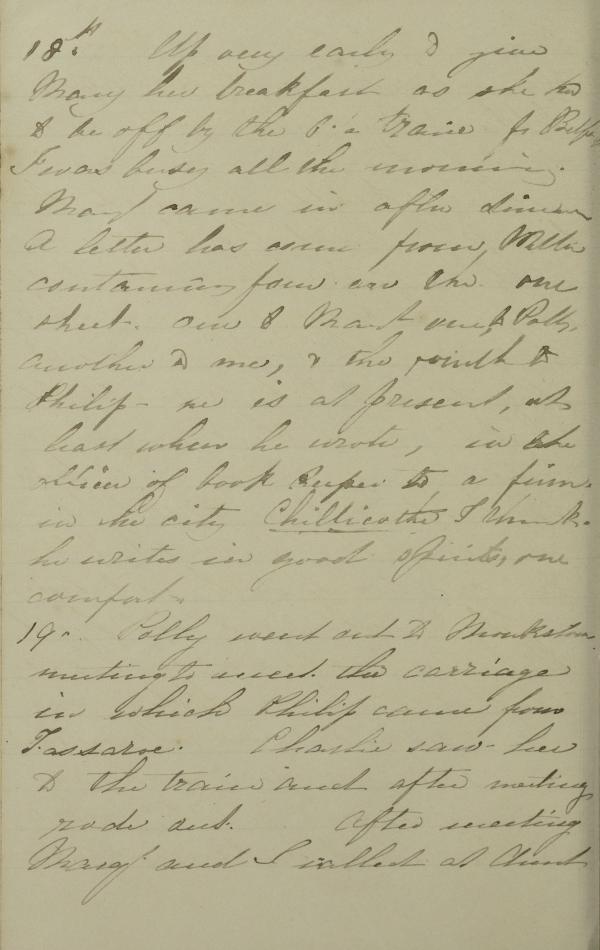 18th. Up very early to give
Mary her breakfast as she had
to be off by the 6. a traine for Belfast
I was busy all the morning.
Margt came in after dinner
A letter has come from, Willie
containing four on the one
sheet. one to Margt one to Polly,
another to me, & the fourth to
Philip - he is at present, at
least when he wrote, in the
office of book keeper to a firm.
in the city Chillicothe I think.
he writes in good spirits, one
comfort -
19. Polly went out to Monkstown
meeting to meet the carriage
in which Philip came from
Fassaroe. Charlie saw her
to the train and after meeting
rode out. After meeting
Margt and I called at Aunt